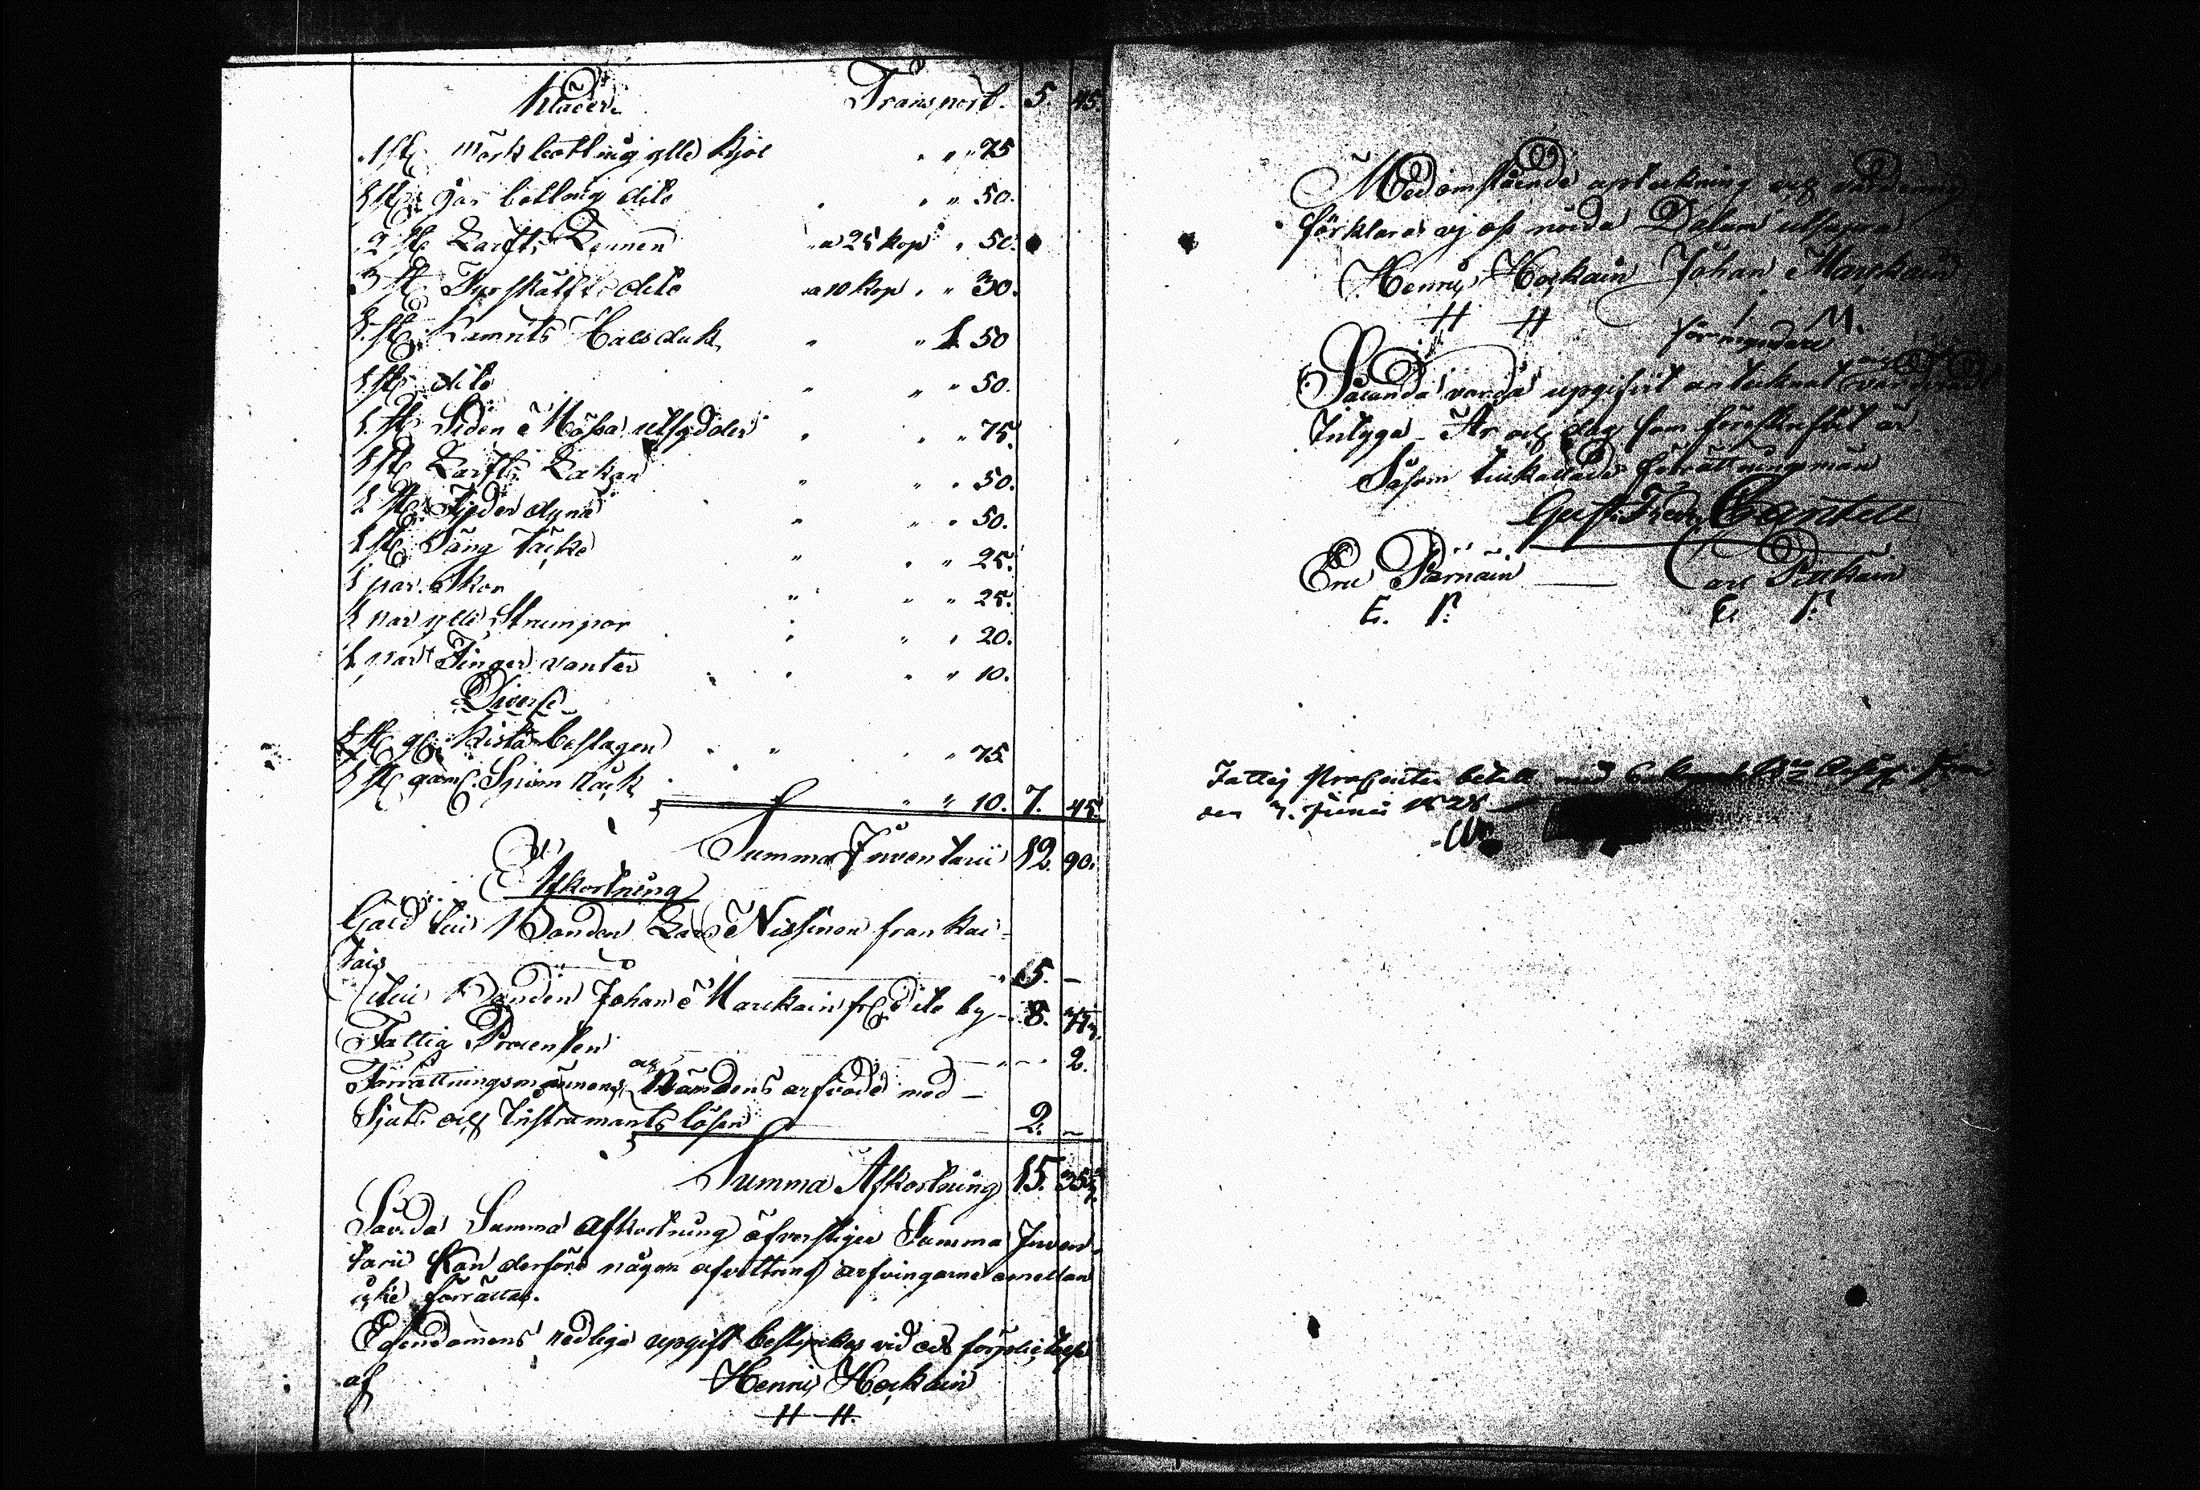 Kläder Transport. 5. 45.
1 st. mörk bottnig ylle kjol " " 75
1 st. grå bottnig dito " " 50.
2 st. Larfts Linnen a 25 kop " 50.
3 st. Fyrskäfts dito a 10 kop " " 30.
1 st. Lerinfts Halsduk " 1. 50
1 st. dito " " 50.
1 st. Siden Mössa utsydder " " 75.
1 st. Larfts Lakan " " 50.
1 st. Fjeder dyna " " 50.
1 st. Säng Täcke " " 25.
1 par Skor " " 25.
1 par ylle Strumpor " " 20.
1 par Finger vanter " " 10.
Diverse
1 st. Kista beslagen " " 75
1 st. gaml. Spinn råck " " 10. 7. 45.
Summa Inventarii 12. 90.
Afkortning
Gäld till Bonden Lars Nissinen från Kai-
tais 5. –
till Bonden Johan Marckain fr. dito by 8.
Fattig Procenten 2.
Förrättningsmännens och Nämdens arfvode med
Skjuts och Instramants lösen 2. –
Summa Afkortning 15.
Såvida Summa Afkortning öfverstiger Summa Inven-
tarii kan derföre någon afvittring arfvingarne emellan
icke förrättas.
Egendomens redliga upgift bestyrkes vid eds förpligtelse
af Henric Hockain
H H.
Med omstående upteckning och värdering
förklara vi oss nöida Datum utsupra
Henric Hockain Johan Marckain
H H I. M.
förmyndare
Sålunda vara upgifvit antecknat och värderadt
Intyga År och dag som föreskrifvit är
Såsom tillkallade förrättningsmän
Gust. Fredr.
Eric Pärnäin Carl Pitkain
E. P. C. P.
Fattig Procenten betalt med
den 7. Junii 1828